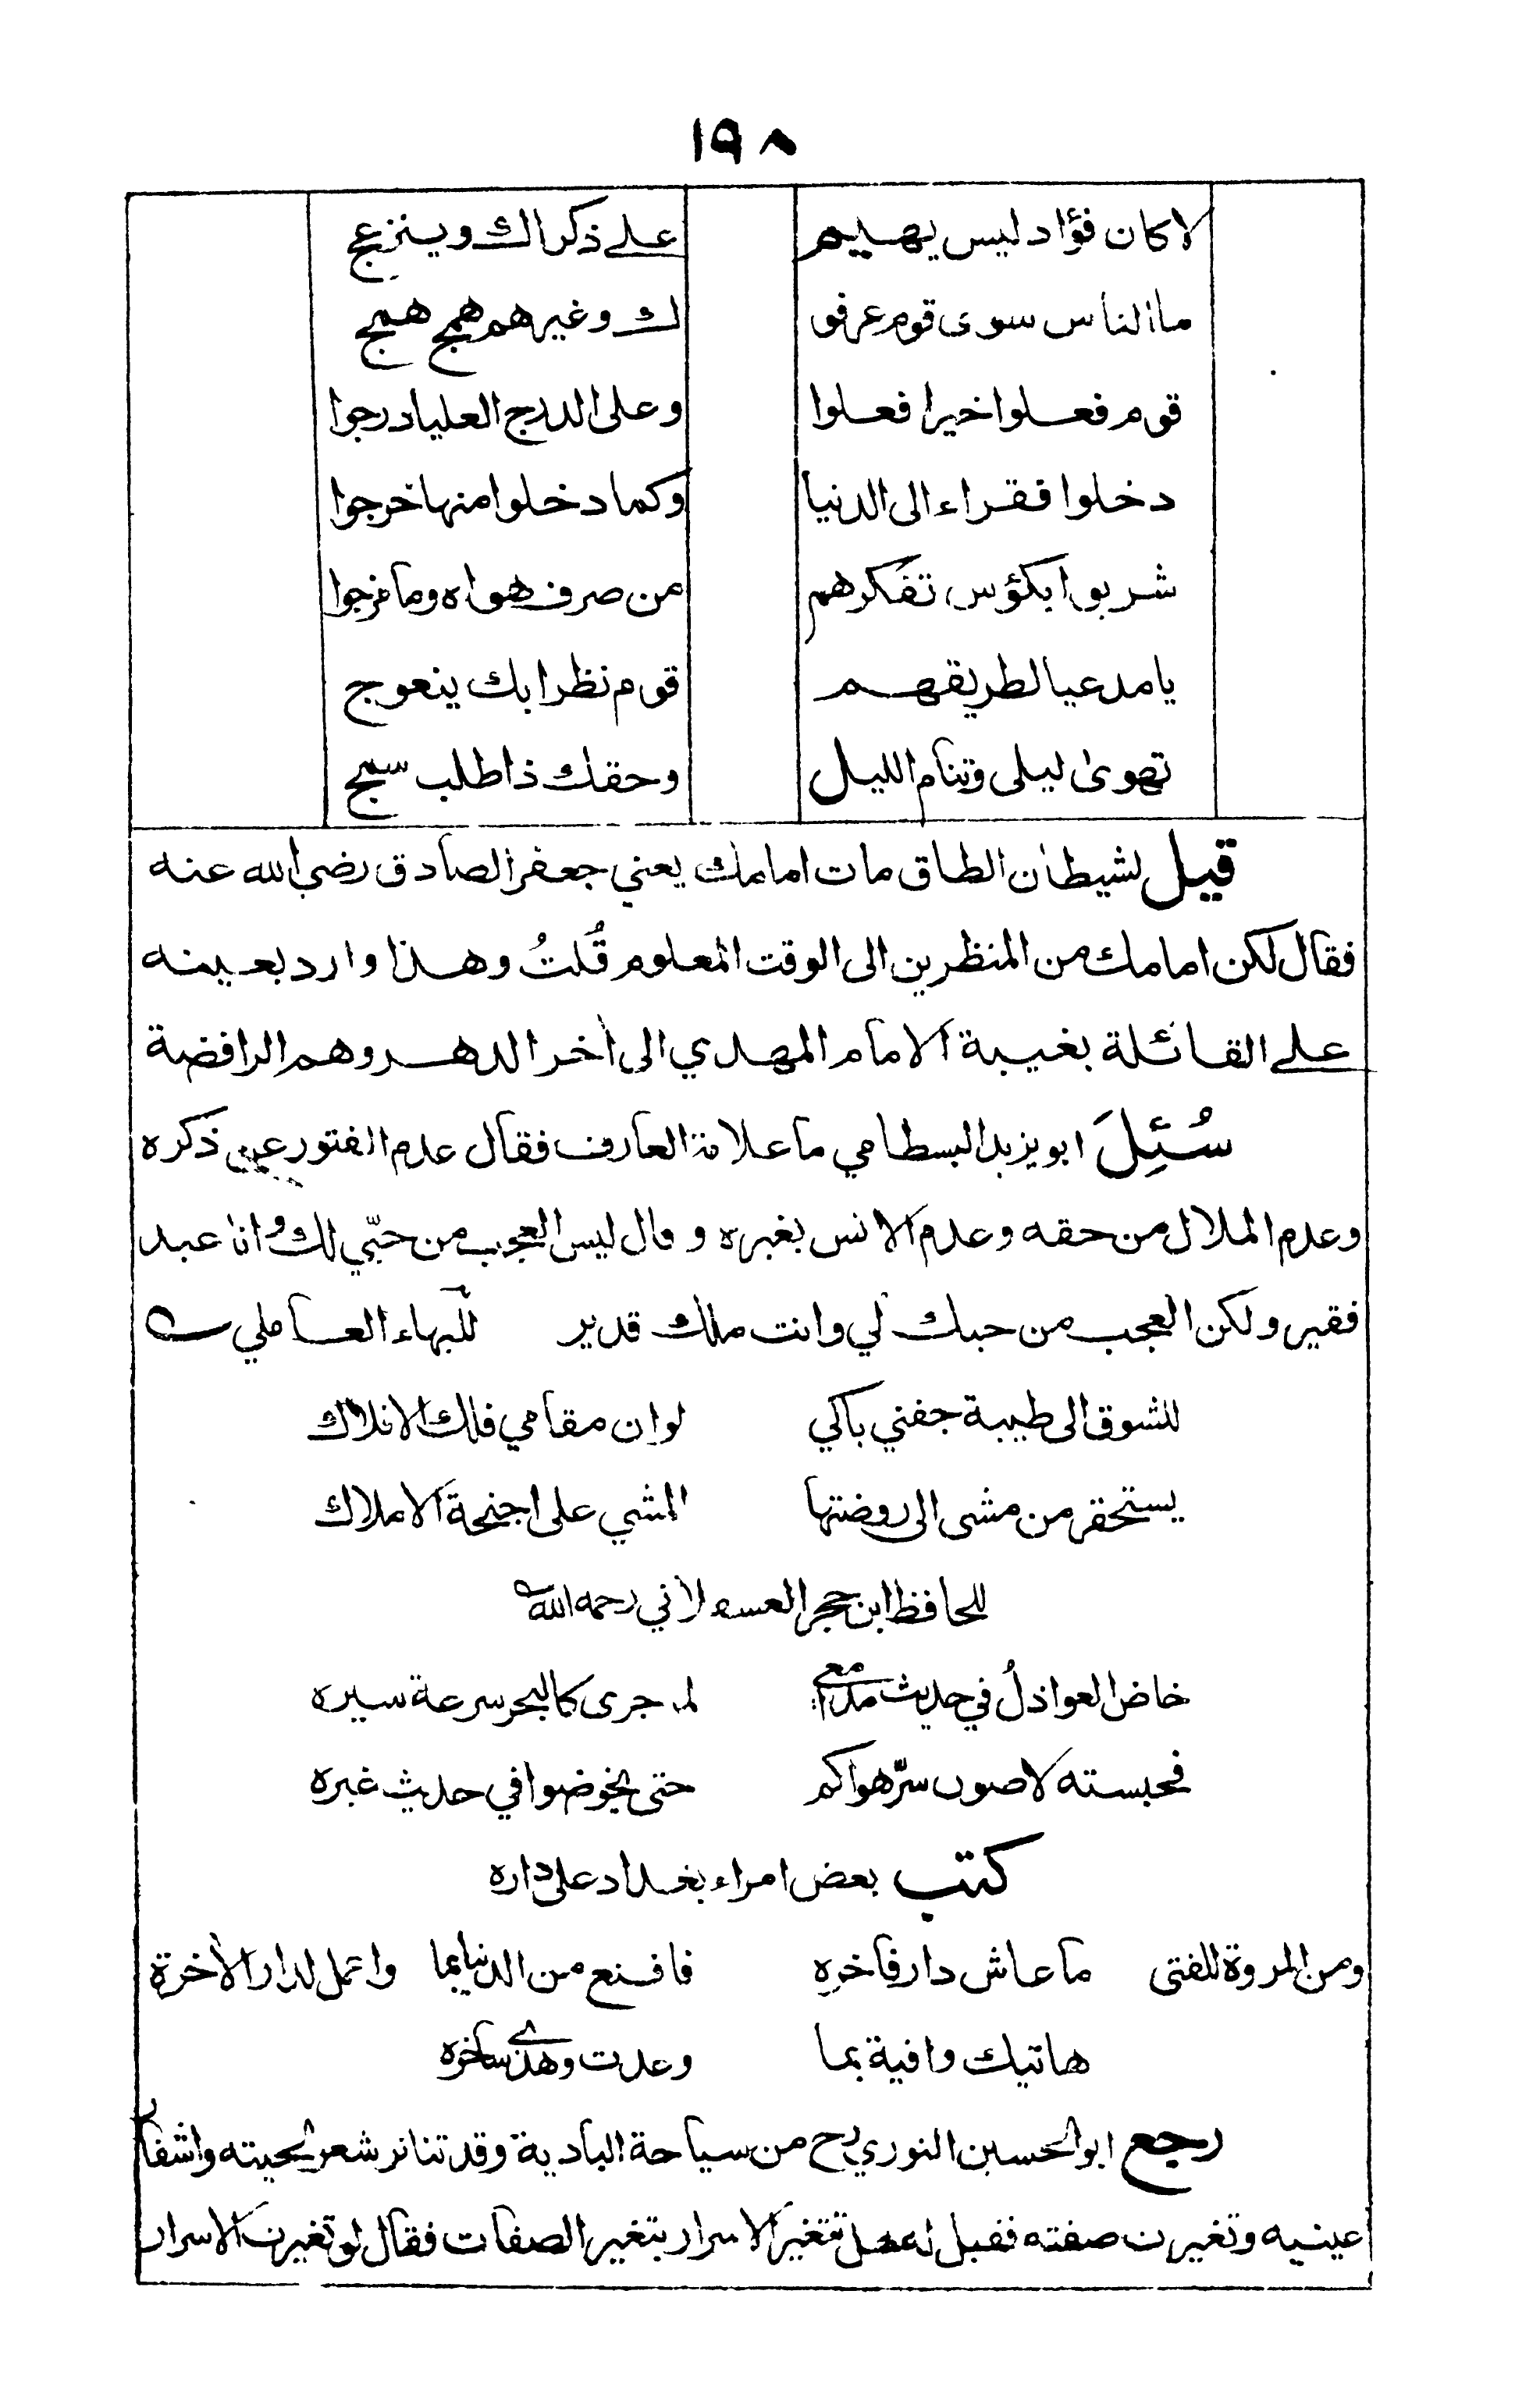 ١٩٨
لا كان فؤاد ليس يهيم على ذكراك وينزعج
ما الناس سوى قوم عرفو ك وغيرهم همج همج
قوم فعلوا خيرا فعلوا وعلى الدرج العليا درجوا
دخلوا فقراء الى الدنيا وكما دخلوا منها خرجوا
شربوا بكؤس تفكرهم من صرف هواه وما مزجوا
يا مدعيا لطريقهم قوم نظرا بك ينعوج
تهوى ليلى وتنام الليل وحقك ذا طلب سمج
قيل لشيطان الطاق مات امامك يعني جعفر الصادق رضي الله عنه
فقال لكن امامك من المنظرين الى الوقت المعلوم قُلتُ وهذا وارد بعينه
على القائلة بغيبة الامام المهدي الى أخر الدهر وهم الرافضة
سُئِلَ ابو يزيد البسطامي ما علامة العارف فقال عدم الفتور عن ذكره
وعدم الملال من حقه وعدم الانس بغيره وقال ليس العجب من حبّي لك وانا عبد
فقير ولكن العجب من حبك لي وانت ملك قدير للبهاء العاملي
للشوق الى طيبة جفني باكي لو ان مقامي فلك الافلاك
يستحقر من مشى الى روضتها المشي على اجنحة الاملاك
للحافظ ابن حجر العسقلاني رحمه الله
خاض العواذلُ في حديث مدامعي لما جرى كالبحر سرعة سيره
فحبسته لاصون سرّ هواكم حتى يخوضوا في حديث غيره
كتب بعض امراء بغداد على داره
ومن المروة للفتى ما عاش دار فاخره فاقنع من الدنيا بما واعمل لدار الأخرة
هاتيك وافية بما وعدت وهذي ساخره
رجع ابو الحسين النوري رح من سياحة البادية وقد تناثر شعر لحيته واشفار
عينيه وتغيرت صفته فقيل له هل تتغير الاسرار بتغير الصفات فقال لو تغيرت الاسرار